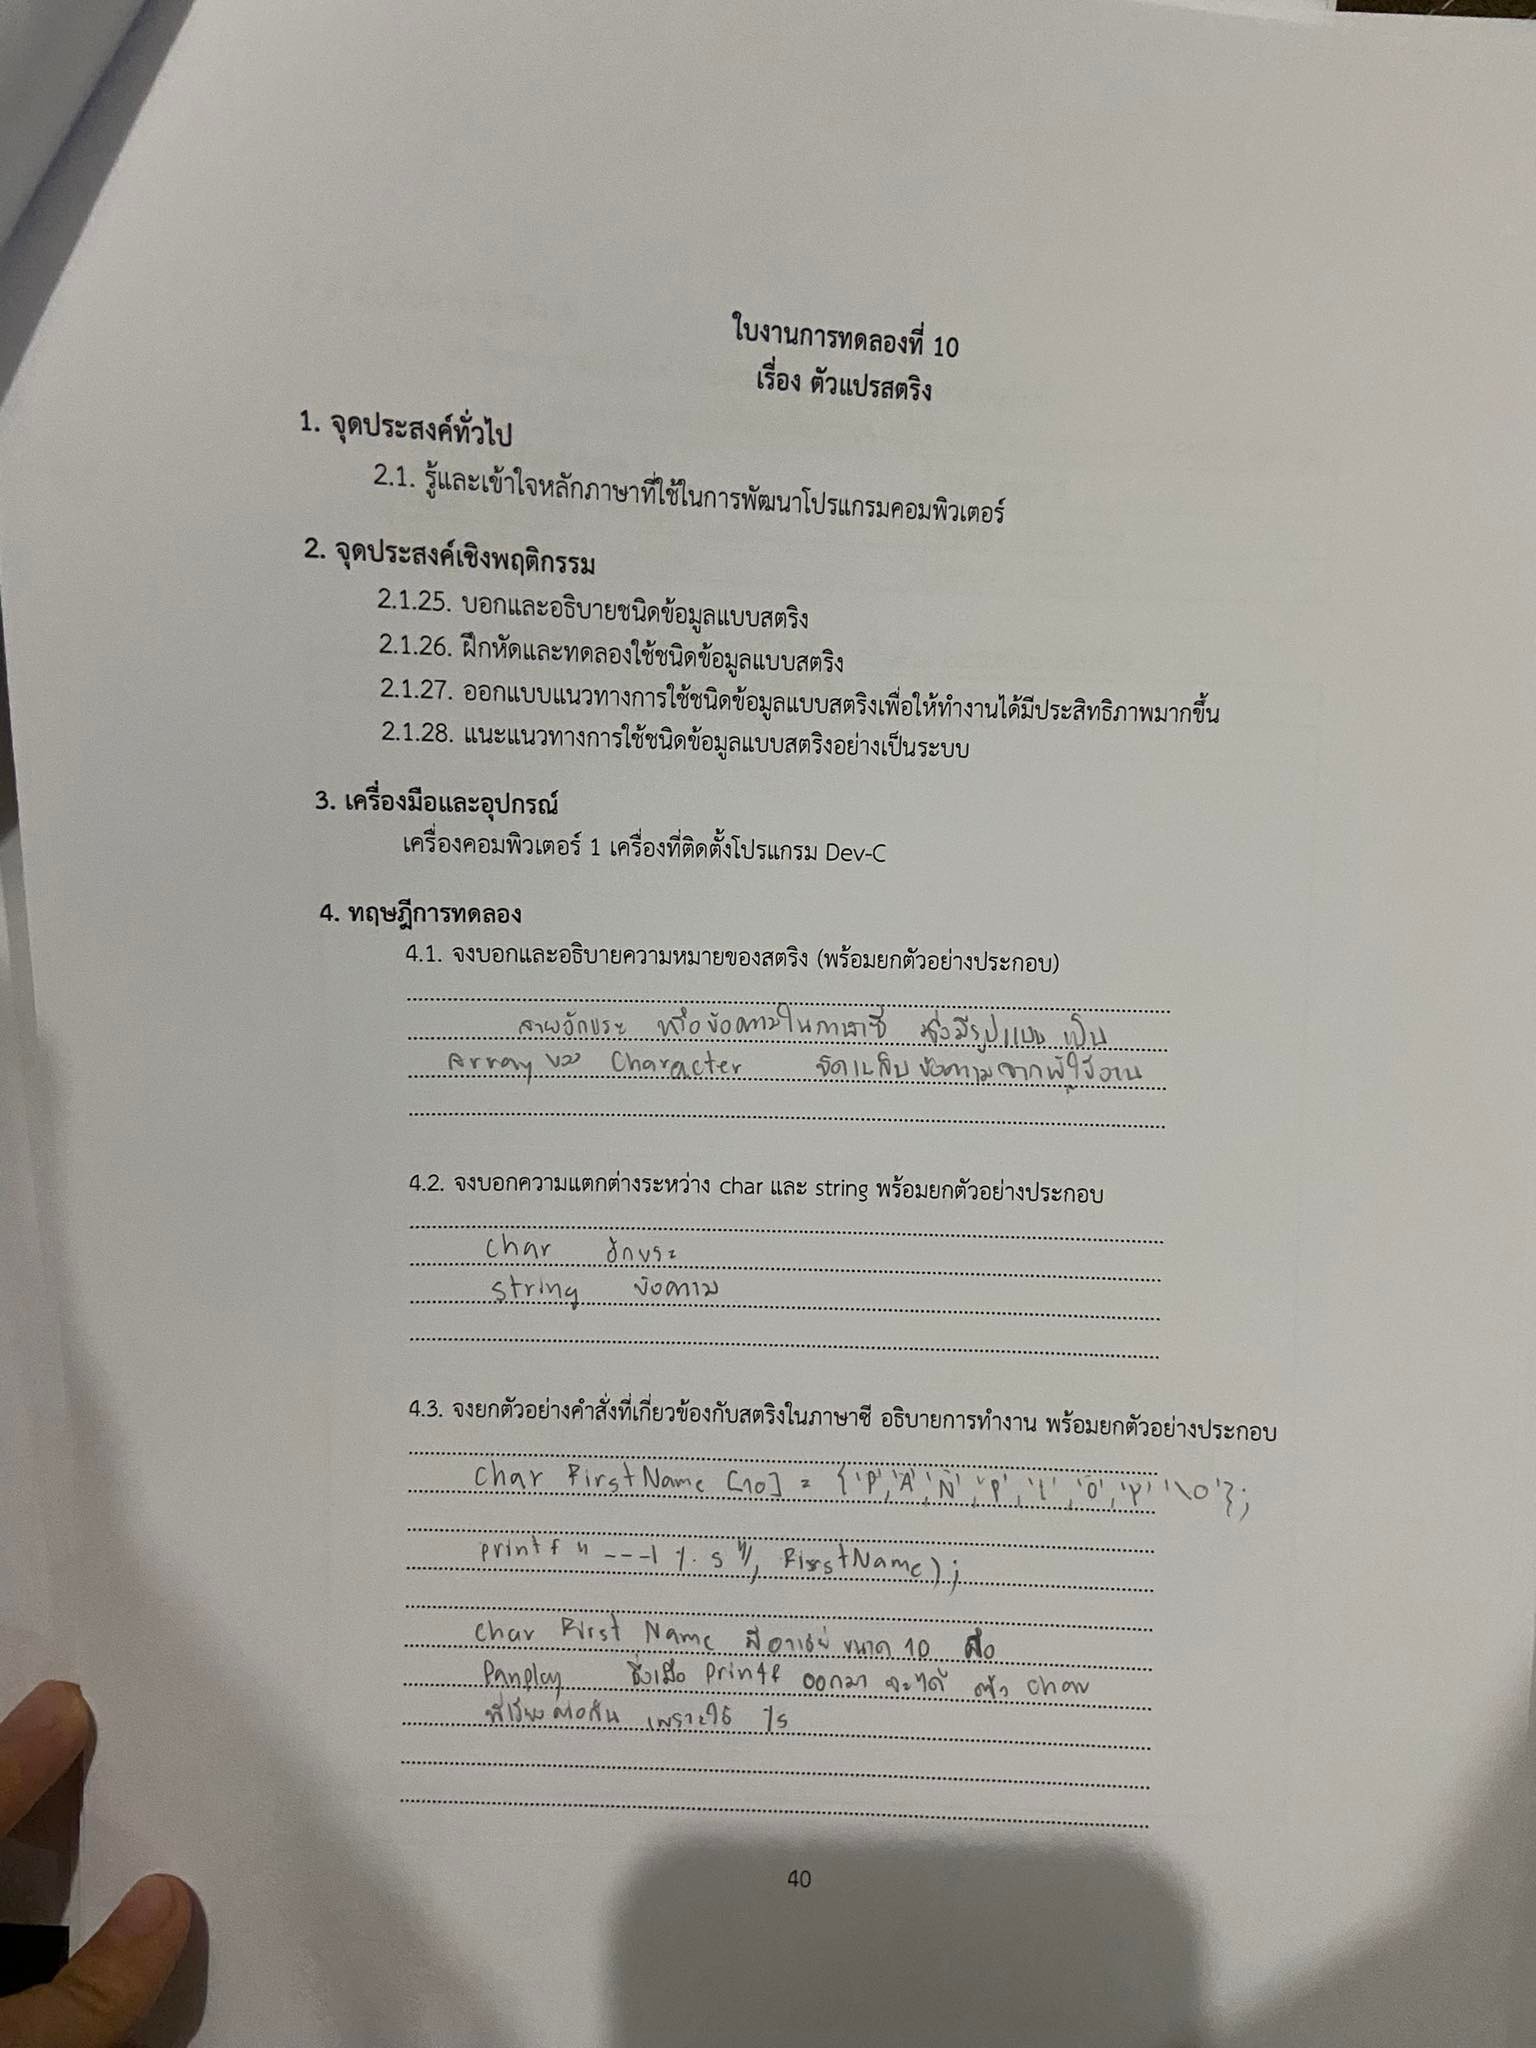 ใบงานการทดลองที่ 10
เรื่อง ตัวแปรสตริง
1. จุดประสงค์ทั่วไป
2.1. รู้และเข้าใจหลักภาษาที่ใช้ในการพัฒนาโปรแกรมคอมพิวเตอร์
2. จุดประสงค์เชิงพฤติกรรม
2.1.25. บอกและอธิบายชนิดข้อมูลแบบสตริง
2.1.26. ฝึกหัดและทดลองใช้ชนิดข้อมูลแบบสตริง
2.1.27. ออกแบบแนวทางการใช้ชนิดข้อมูลแบบสตริงเพื่อให้ทำงานได้มีประสิทธิภาพมากขึ้น
2.1.28. แนะแนวทางการใช้ชนิดข้อมูลแบบสตริงอย่างเป็นระบบ
3. เครื่องมือและอุปกรณ์
เครื่องคอมพิวเตอร์ 1 เครื่องที่ติดตั้งโปรแกรม Dev-C
4. ทฤษฎีการทดลอง
4.1. จงบอกและอธิบายความหมายของสตริง (พร้อมยกตัวอย่างประกอบ)
สายอักขระ หรือข้อความในภาษาซี ซึ่งมีรูปแบบ เป็น
Array ของ Character จัดเก็บข้อความจากผู้ใช้งาน
4.2. จงบอกความแตกต่างระหว่าง char และ string พร้อมยกตัวอย่างประกอบ
char อักขระ
string ข้อความ
4.3. จงยกตัวอย่างคำสั่งที่เกี่ยวข้องกับสตริงในภาษาซี อธิบายการทำงาน พร้อมยกตัวอย่างประกอบ
Char FirstName [10] = {'P','A','N','P','L','O','Y' '\0'};
printf " ---| %s ", FirstName);
char First Name มีอาเรย์ ขนาด 10 คือ
Panploy ซึ่งเมื่อ printf ออกมา จะได้ ตัว char
ที่เรียงต่อกัน เพราะใช้ %s
40